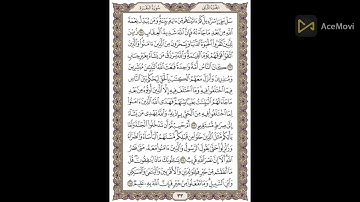 الجزء الثاني
سورة البقرة
AceMovi
سَلْ بَنِىٓ إِسْرَٰٓءِيلَ كَمْ ءَاتَيْنَٰهُم مِّنْ ءَايَةٍۭ بَيِّنَةٍ وَمَن يُبَدِّلْ نِعْمَةَ
ٱللَّهِ مِنۢ بَعْدِ مَا جَآءَتْهُ فَإِنَّ ٱللَّهَ شَدِيدُ ٱلْعِقَابِ ٢١١ زُيِّنَ
لِلَّذِينَ كَفَرُوا۟ ٱلْحَيَوٰةُ ٱلدُّنْيَا وَيَسْخَرُونَ مِنَ ٱلَّذِينَ ءَامَنُوا۟ وَٱلَّذِينَ
ٱتَّقَوْا۟ فَوْقَهُمْ يَوْمَ ٱلْقِيَٰمَةِ وَٱللَّهُ يَرْزُقُ مَن يَشَآءُ بِغَيْرِ حِسَابٍ
٢١٢ كَانَ ٱلنَّاسُ أُمَّةً وَٰحِدَةً فَبَعَثَ ٱللَّهُ ٱلنَّبِيِّـۧنَ مُبَشِّرِينَ
وَمُنذِرِينَ وَأَنزَلَ مَعَهُمُ ٱلْكِتَٰبَ بِٱلْحَقِّ لِيَحْكُمَ بَيْنَ ٱلنَّاسِ
فِيمَا ٱخْتَلَفُوا۟ فِيهِ وَمَا ٱخْتَلَفَ فِيهِ إِلَّا ٱلَّذِينَ أُوتُوهُ مِنۢ بَعْدِ
مَا جَآءَتْهُمُ ٱلْبَيِّنَٰتُ بَغْيًۢا بَيْنَهُمْ فَهَدَى ٱللَّهُ ٱلَّذِينَ ءَامَنُوا۟
لِمَا ٱخْتَلَفُوا۟ فِيهِ مِنَ ٱلْحَقِّ بِإِذْنِهِۦ وَٱللَّهُ يَهْدِى مَن يَشَآءُ
إِلَىٰ صِرَٰطٍ مُّسْتَقِيمٍ ٢١٣ أَمْ حَسِبْتُمْ أَن تَدْخُلُوا۟ ٱلْجَنَّةَ وَلَمَّا
يَأْتِكُم مَّثَلُ ٱلَّذِينَ خَلَوْا۟ مِن قَبْلِكُم مَّسَّتْهُمُ ٱلْبَأْسَآءُ وَٱلضَّرَّآءُ
وَزُلْزِلُوا۟ حَتَّىٰ يَقُولَ ٱلرَّسُولُ وَٱلَّذِينَ ءَامَنُوا۟ مَعَهُۥ مَتَىٰ نَصْرُ
ٱللَّهِ أَلَآ إِنَّ نَصْرَ ٱللَّهِ قَرِيبٌ ٢١٤ يَسْـَٔلُونَكَ مَاذَا يُنفِقُونَ قُلْ
مَآ أَنفَقْتُم مِّنْ خَيْرٍ فَلِلْوَٰلِدَيْنِ وَٱلْأَقْرَبِينَ وَٱلْيَتَٰمَىٰ وَٱلْمَسَٰكِينِ
وَٱبْنِ ٱلسَّبِيلِ وَمَا تَفْعَلُوا۟ مِنْ خَيْرٍ فَإِنَّ ٱللَّهَ بِهِۦ عَلِيمٌ ٢١٥
٣٣